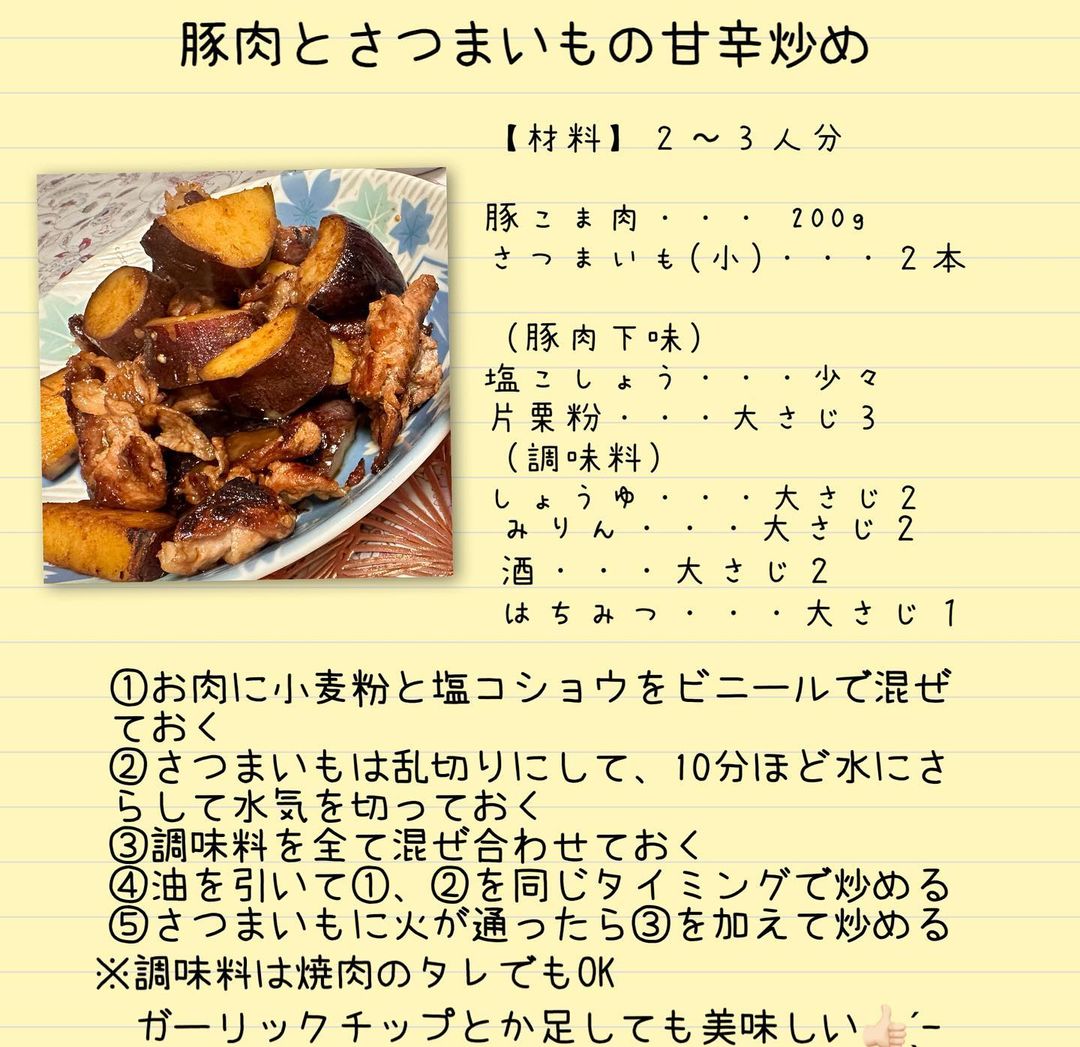 豚肉とさつまいもの甘辛炒め
【材料】 2〜3人分
豚こま肉・・・ 200g
さつまいも(小)・・・2本
(豚肉下味)
塩こしょう・・・少々
片栗粉・・・大さじ3
(調味料)
しょうゆ・・・大さじ2
みりん・・・大さじ2
酒・・・大さじ2
はちみつ・・・大さじ1
①お肉に小麦粉と塩コショウをビニールで混ぜ
ておく
②さつまいもは乱切りにして、10分ほど水にさ
らして水気を切っておく
③調味料を全て混ぜ合わせておく
④油を引いて①、②を同じタイミングで炒める
⑤さつまいもに火が通ったら③を加えて炒める
※調味料は焼肉のタレでもOK
ガーリックチップとか足しても美味しい👍🏻 ̖́-